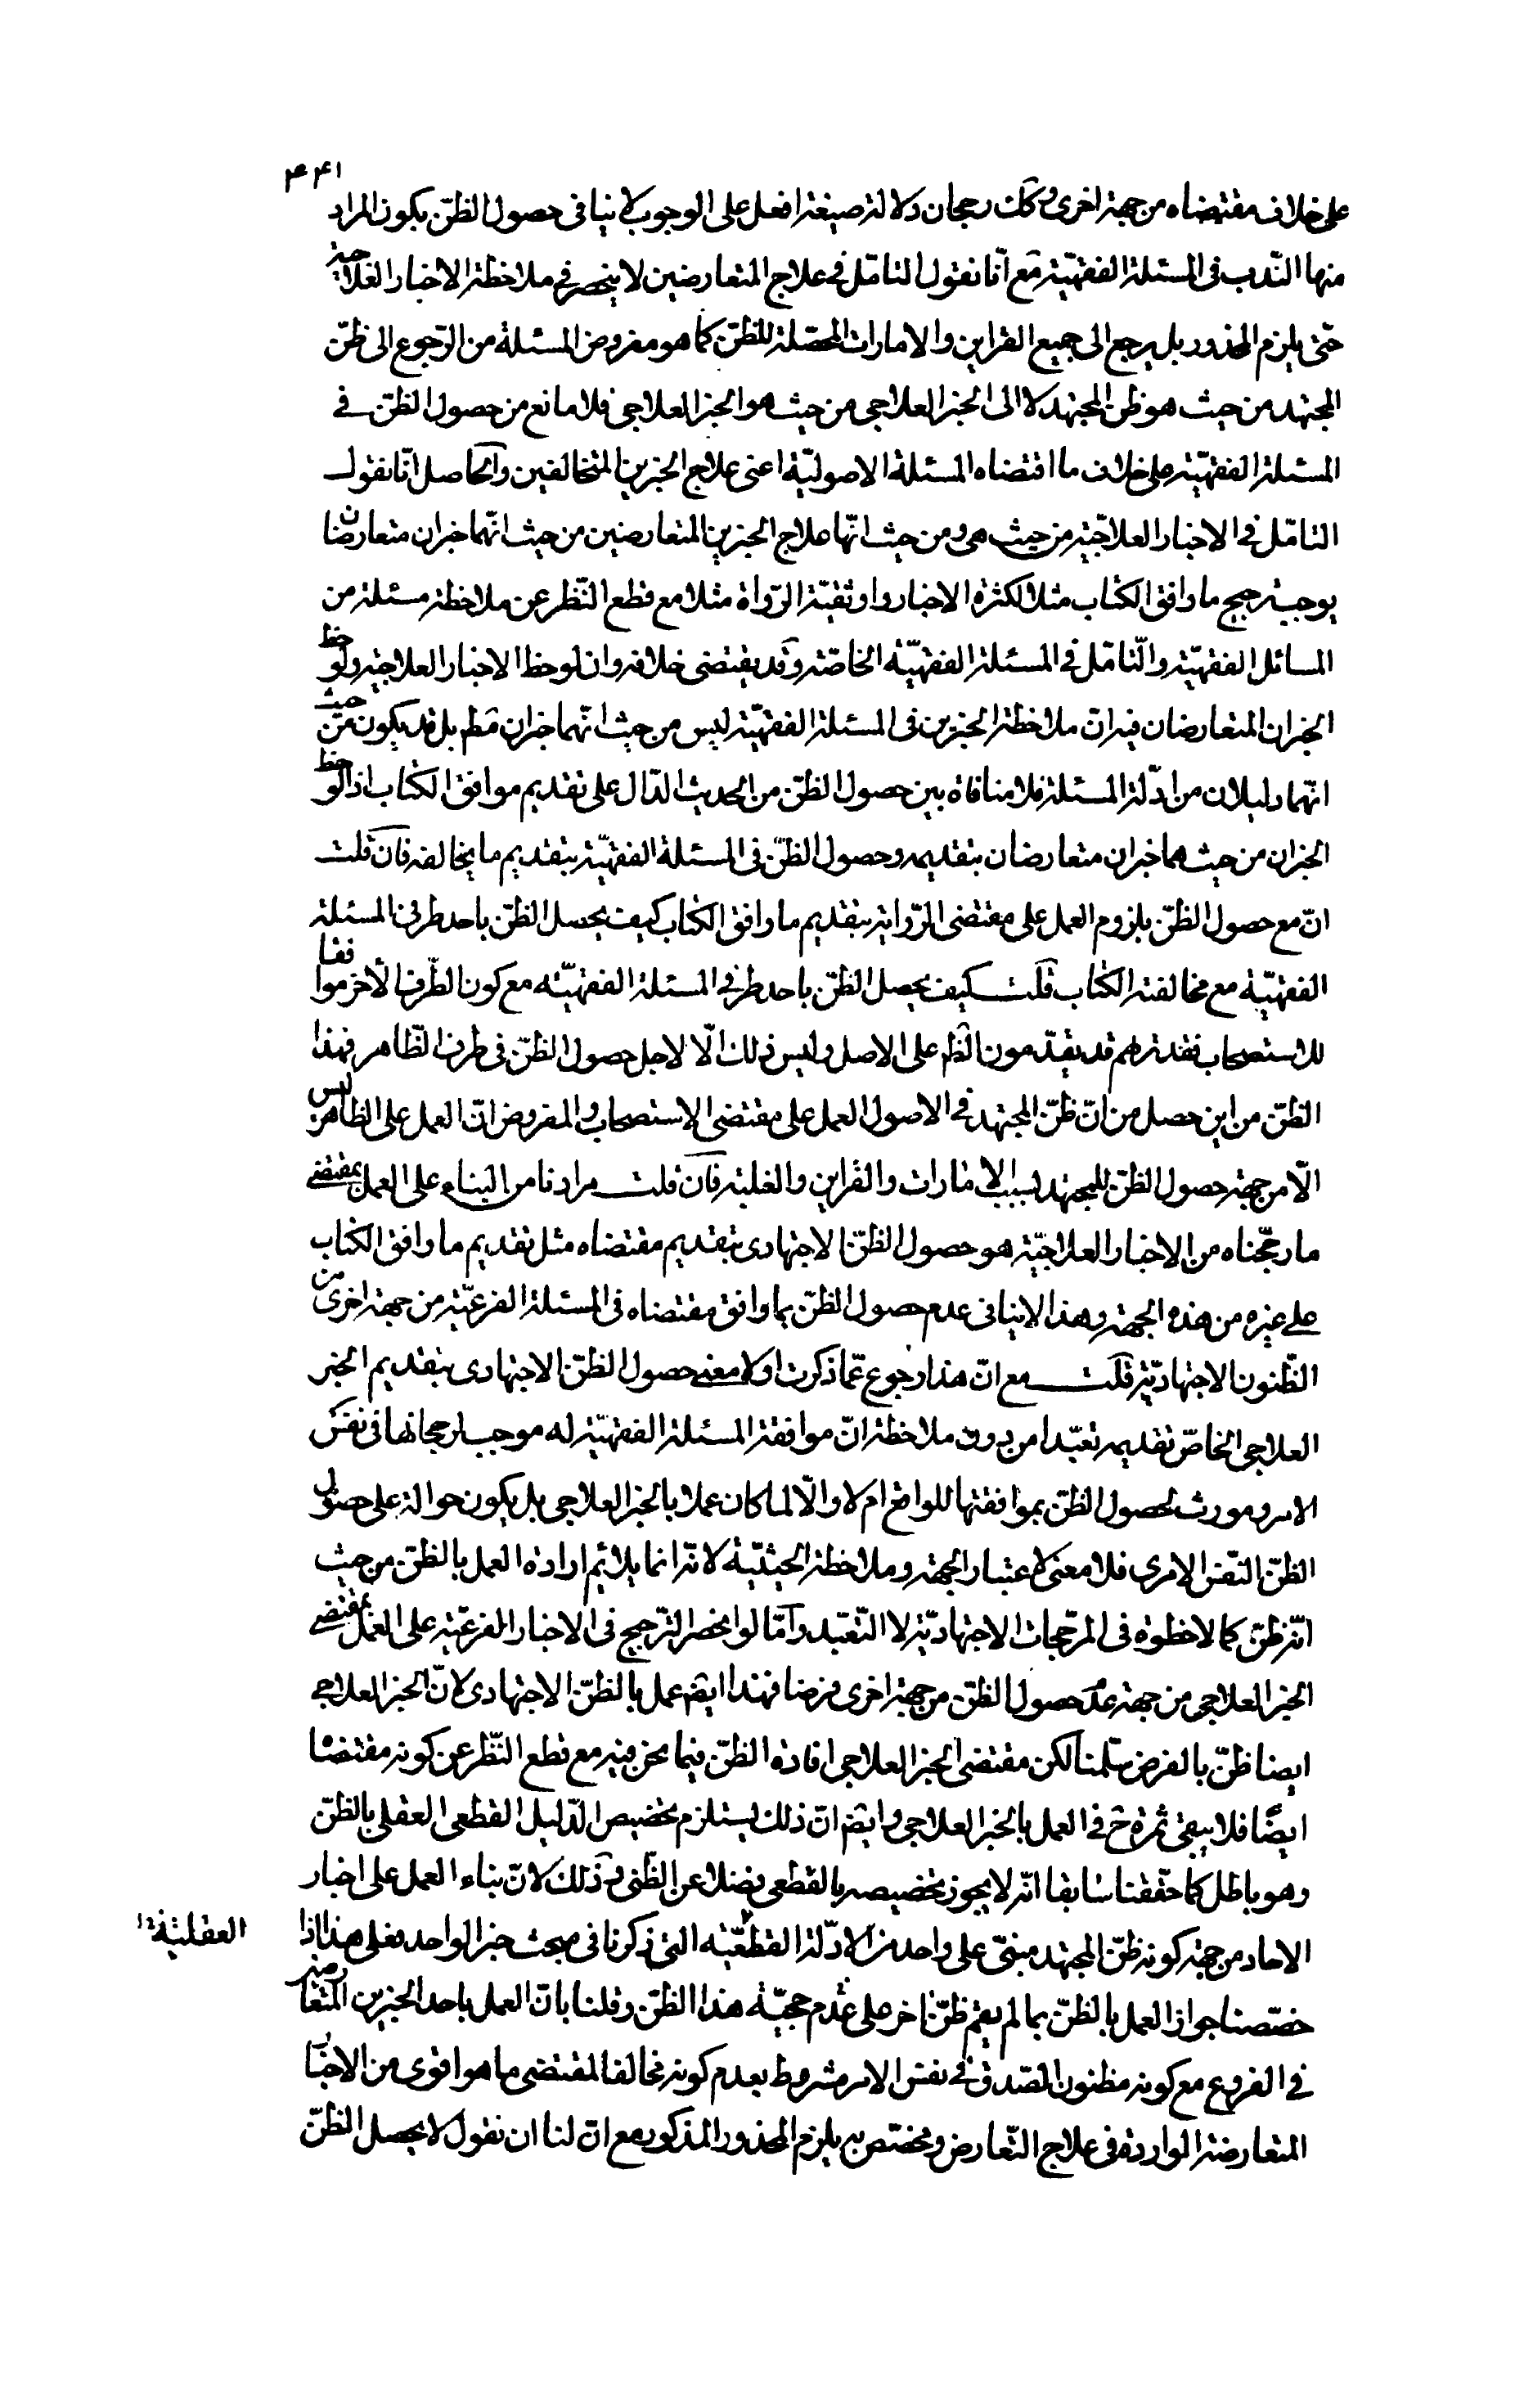 ۴۴۱
على خلاف مقتضاه من جهة اخرى وكك رجحان دلالة صيغة افعل على الوجوب لا ينافى حصول الظنّ بكون المراد
منها النّدب فى المسئلة الفقهيّة مع انّا نقول التامّل فى علاج المتعارضين لا ينحصر فى ملاحظة الاخبار العلاجية
حتّى يلزم المحذور بل يرجع الى جميع القراين والامارات المحصّلة للظنّ كما هو مفروض المسئلة من الرّجوع الى ظنّ
المجتهد من حيث هو ظنّ المجتهد لا الى الخبر العلاجى من حيث هو الخبر العلاجى فلا مانع من حصول الظنّ فى
المسئلة الفقهيّة على خلاف ما اقتضاه المسئلة الاصوليّة اعنى علاج الخبرين المتخالفين والحاصل انّا نقول
التامّل فى الاخبار العلاجيّة من حيث هى ومن حيث انّها علاج الخبرين المتعارضين من حيث انّهما خبران متعارضان
يوجب ترجيح ما وافق الكتاب مثلا لكثرة الاخبار واوثقيّة الرّواة مثلا مع قطع النّظر عن ملاحظة مسئلة من
المسائل الفقهيّة والتّامّل فى المسئلة الفقهيّة الخاصّة وقد يقتضى خلافه وان لوحظ الاخبار العلاجية ولوحظ
الخبران المتعارضان فيه انّ ملاحظة الخبرين فى المسئلة الفقهيّة ليس من حيث انّهما خبران فقط بل قد يكون من حيث
انّهما دليلان من ادّلة المسئلة فلا منافاة بين حصول الظنّ من الحديث الدّال على تقديم موافق الكتاب اذا لوحظ
الخبران من حيث هما خبران متعارضان بتقديمه وحصول الظنّ فى المسئلة الفقهيّة بتقديم ما يخالفه فان قلت
انّ مع حصول الظنّ بلزوم العمل على مقتضى الرّواية بتقديم ما وافق الكتاب كيف يحصل الظنّ باحد طرفى المسئلة
الفقهيّة مع مخالفته الكتاب قلت كيف يحصل الظنّ باحد طرفى المسئلة الفقهيّة مع كون الطّرف الاخر موافقا
للاستصحاب فقد تريهم قد يقدّمون الظم على الاصل وليس ذلك الّا لاجل حصول الظنّ فى طرف الظّاهر فهذا
الظنّ من اين حصل من انّ ظنّ المجتهد فى الاصول العمل على مقتضى الاستصحاب والمفروض انّ العمل على الظاهر ليس
الّا من جهة حصول الظنّ للمجتهد بسبب الامارات والقراين والغلبة فان قلت مرادنا من البناء على العمل بمقتضى
ما رجّحناه من الاخبار العلاجيّة هو حصول الظنّ الاجتهادى بتقديم مقتضاه مثل تقديم ما وافق الكتاب
على غيره من هذه الجهة وهذا لا ينافى عدم حصول الظنّ بما وافق مقتضاه فى المسئلة الفرعيّة من جهة اخرى من
الظّنون الاجتهاديّة قلت مع انّ هذا رجوع عمّا ذكرت اولا معنى حصول الظنّ الاجتهادى بتقديم الخبر
العلاجى الخاصّ تقديمه تعبّدا من دون ملاحظة انّ موافقة المسئلة الفقهيّة له موجب لرجحانها فى نفس
الامر ومورث لحصول الظنّ بموافقتها للواقع ام لا والّا لما كان عملا بالخبر العلاجى بل يكون حوالة على حصول
الظنّ النّفس الامرى فلا معنى لاعتبار الجهة وملاحظة الحيثيّة لانّه انما يلائم ارادة العمل بالظنّ من حيث
انّه ظنّ كما لاحظوه فى المرجّحات الاجتهاديّة لا التّعبّد وامّا لو انحصر التّرجيح فى الاخبار الفرعيّة على العمل بمقتضى
الخبر العلاجى من جهة عدم حصول الظنّ من جهة اخرى فرضا فهذا ايضم عمل بالظنّ الاجتهادى لانّ الخبر العلاجى
ايضا ظنّ بالفرض سلّمنا لكن مقتضى الخبر العلاجى افادة الظنّ فيما نحن فيه مع قطع النّظر عن كونه مقتضاه
ايضًا فلا يبقى ثمرة ح فى العمل بالخبر العلاجى وايضم انّ ذلك يستلزم تخصيص الدّليل القطعى العقلى بالظنّ
وهو باطل كما حقّقنا سابقا انّه لا يجوز تخصيصه بالقطعى فضلا عن الظّنى وذلك لانّ بناء العمل على اخبار
الاحاد من جهة كونه ظنّ المجتهد مبنىّ على واحد من الادّلة القطعيّة التى ذكرنا فى مبحث خبر الواحد فعلى هذا اذا
العقليّة
خصّصنا جواز العمل بالظنّ بما لم يقم ظنّ اخر على عدم حجيّة هذا الظنّ وقلنا بانّ العمل باحد الخبرين المتعارضين
فى الفروع مع كونه مظنون الصّدق فى نفس الامر مشروط بعدم كونه مخالفا لمقتضى ما هو اقوى من الاخبار
المتعارضة الواردة فى علاج التّعارض ومختصّ به يلزم المحذور المذكور مع انّ لنا ان نقول لا يحصل الظنّ